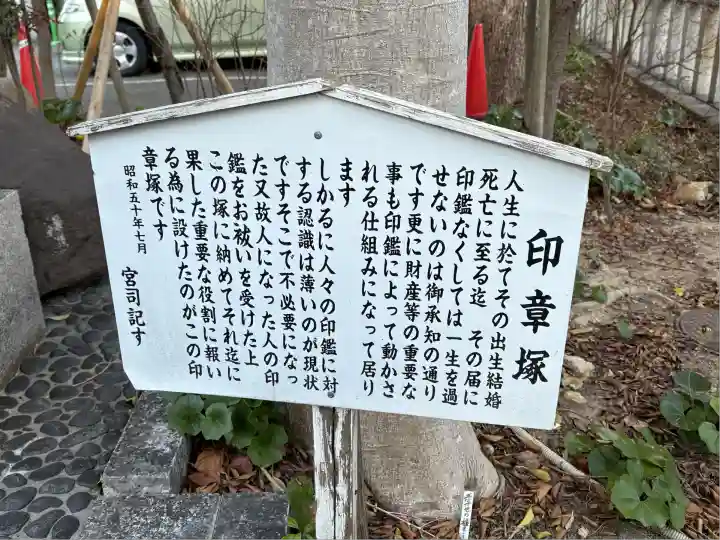 印章塚
人生に於てその出生結婚
死亡に至る迄 その届に
印鑑なくしては一生を過
せないのは御承知の通り
です更に財産等の重要な
事も印鑑によって動かさ
れる仕組みになって居り
ます
しかるに人々の印鑑に対
する認識は薄いのが現状
ですそこで不必要になっ
た又故人になった人の印
鑑をお祓いを受けた上
この塚に納めてそれ迄に
果した重要な役割に報い
る為に設けたのがこの印
章塚です
昭和五十年七月 宮司記す